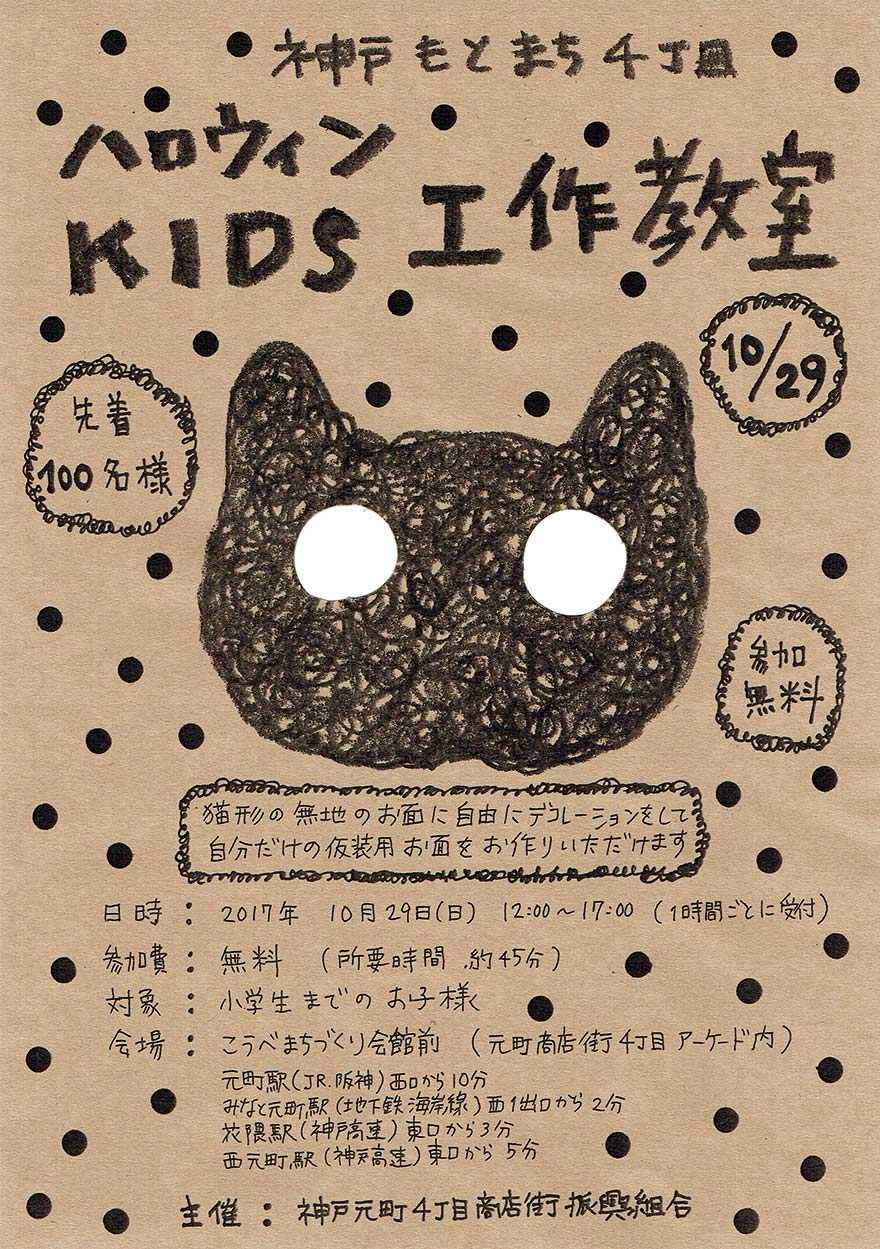 神戸もとまち4丁目
ハロウィン
KIDS 工作教室
10/29
先着
100名様
参加
無料
猫形の無地のお面に自由にデコレーションをして
自分だけの仮装用お面をお作りいただけます
日時： 2017年 10月29日(日) 12:00～17:00 (1時間ごとに受付)
参加費： 無料 (所要時間 約45分)
対象： 小学生までのお子様
会場： こうべまちづくり会館前 (元町商店街4丁目アーケード内)
元町駅(JR.阪神)西口から10分
みなと元町駅(地下鉄海岸線)西1出口から2分
花隈駅(神戸高速)東口から3分
西元町駅(神戸高速)東口から5分
主催： 神戸元町4丁目商店街振興組合